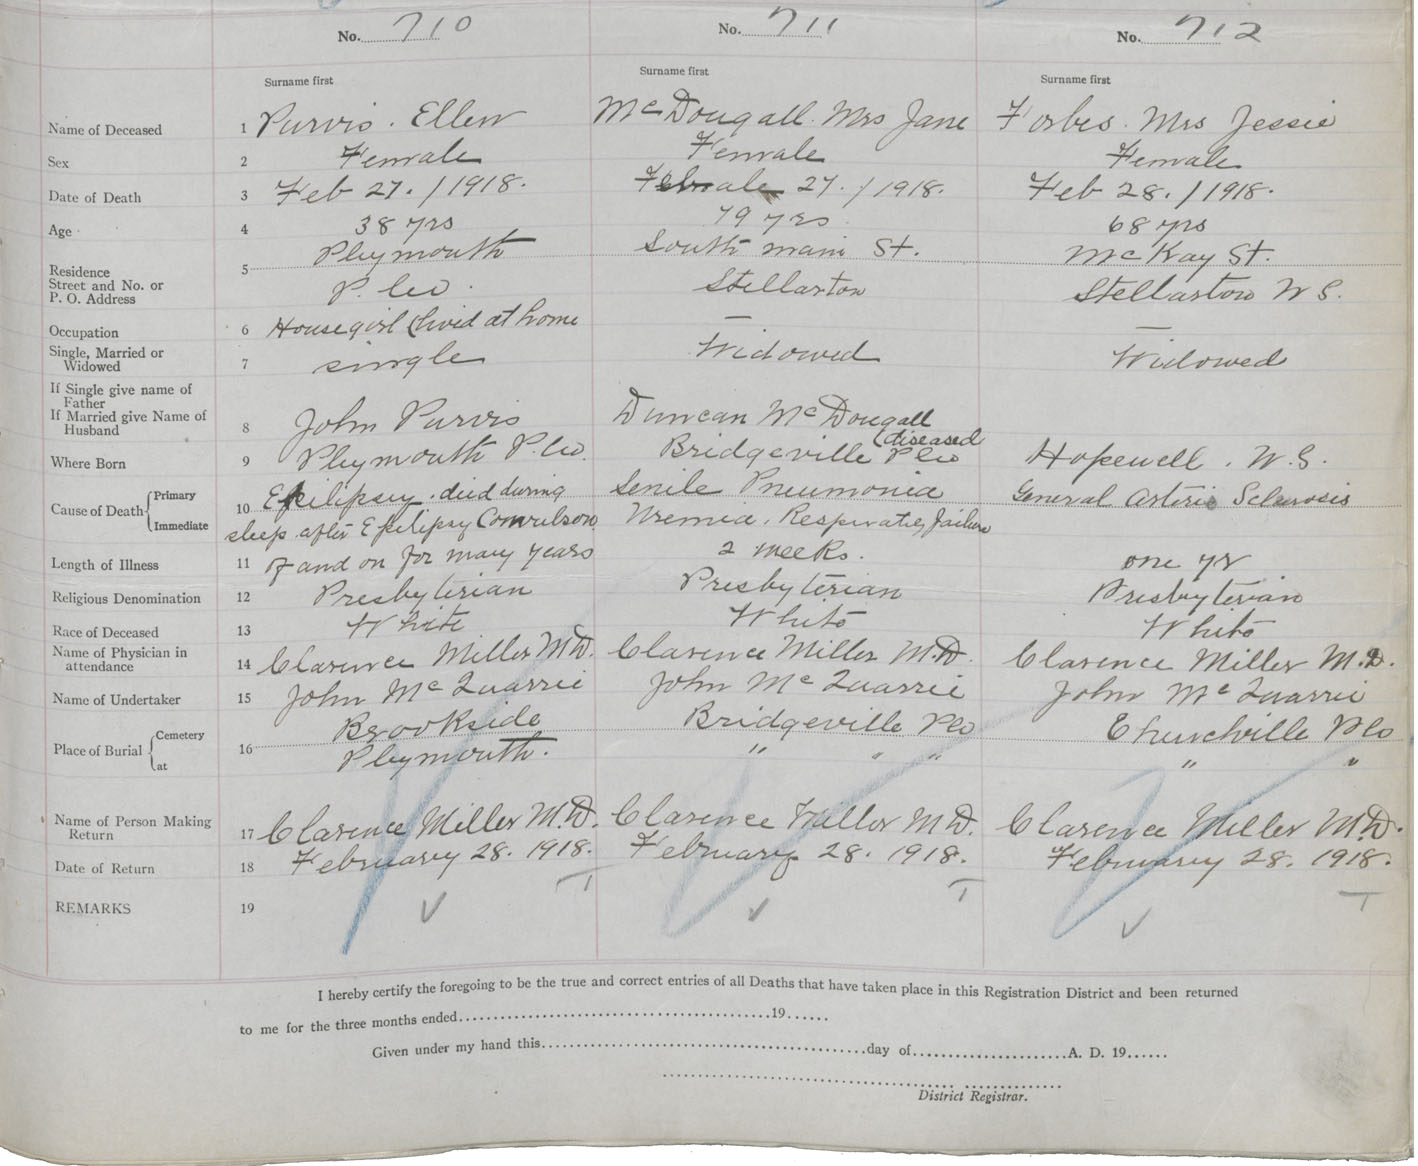 No. 710
No. 711
No. 712
Surname first
Surname first
Surname first
Name of Deceased 1 Purvis. Ellen
McDougall. Mrs Jane
Forbes. Mrs Jessie
Sex 2 Female
Female
Female
Date of Death 3 Feb 27. / 1918.
27. / 1918.
Feb 28. / 1918.
Age 4 38 yrs
79 yrs
68 yrs
Residence
Street and No. or
P. O. Address
5 Plymouth
P. Co.
South main St.
Stellarton
McKay St.
Stellarton N S.
Occupation 6 House girl (lived at home
—
—
Single, Married or
Widowed
7 single
Widowed
Widowed
If Single give name of
Father
If Married give Name of
Husband
8 John Purvis
Duncan McDougall
(diseased
Where Born 9 Plymouth P. Co.
Bridgeville P Co
Hopewell. N. S.
Cause of Death { Primary
Immediate
10 Epilipsy. died during
sleep after Epilipsy
Senile Pneumonia
Uremia. Respiratory failure
General Arterio Sclerosis
Length of Illness 11 of and on for many years
2 weeks.
one yr
Religious Denomination 12 Presbyterian
Presbyterian
Presbyterian
Race of Deceased 13 White
White
White
Name of Physician in
attendance
14 Clarence Miller M.D.
Clarence Miller M.D.
Clarence Miller M.D.
Name of Undertaker 15 John McQuarrie
John McQuarrie
John McQuarrie
Place of Burial { Cemetery
at
16 Brookside
Plymouth.
Bridgeville P Co
" " "
Churchville P Co
" "
Name of Person Making
Return
17 Clarence Miller M.D.
Clarence Miller M D.
Clarence Miller M.D.
Date of Return 18 February 28. 1918.
February 28. 1918.
February 28. 1918.
REMARKS 19
I hereby certify the foregoing to be the true and correct entries of all Deaths that have taken place in this Registration District and been returned
to me for the three months ended..........19......
Given under my hand this..........day of..........A. D. 19......
District Registrar.